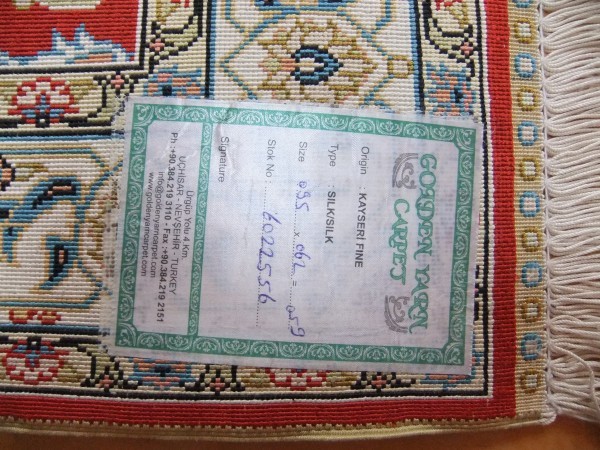 GOLDEN YARN
CARPET
Origin : KAYSERİ FINE
Type : SILK/SILK
Size 095 x 062 = 059
Stok No : 6022556
Signature
Ürgüp Yolu 4.Km.
UÇHİSAR - NEVŞEHİR - TURKEY
Ph :+90.384.219 3110 - Fax :+90.384.219 2151
info@goldenyarncarpet.com
www.goldenyarncarpet.com